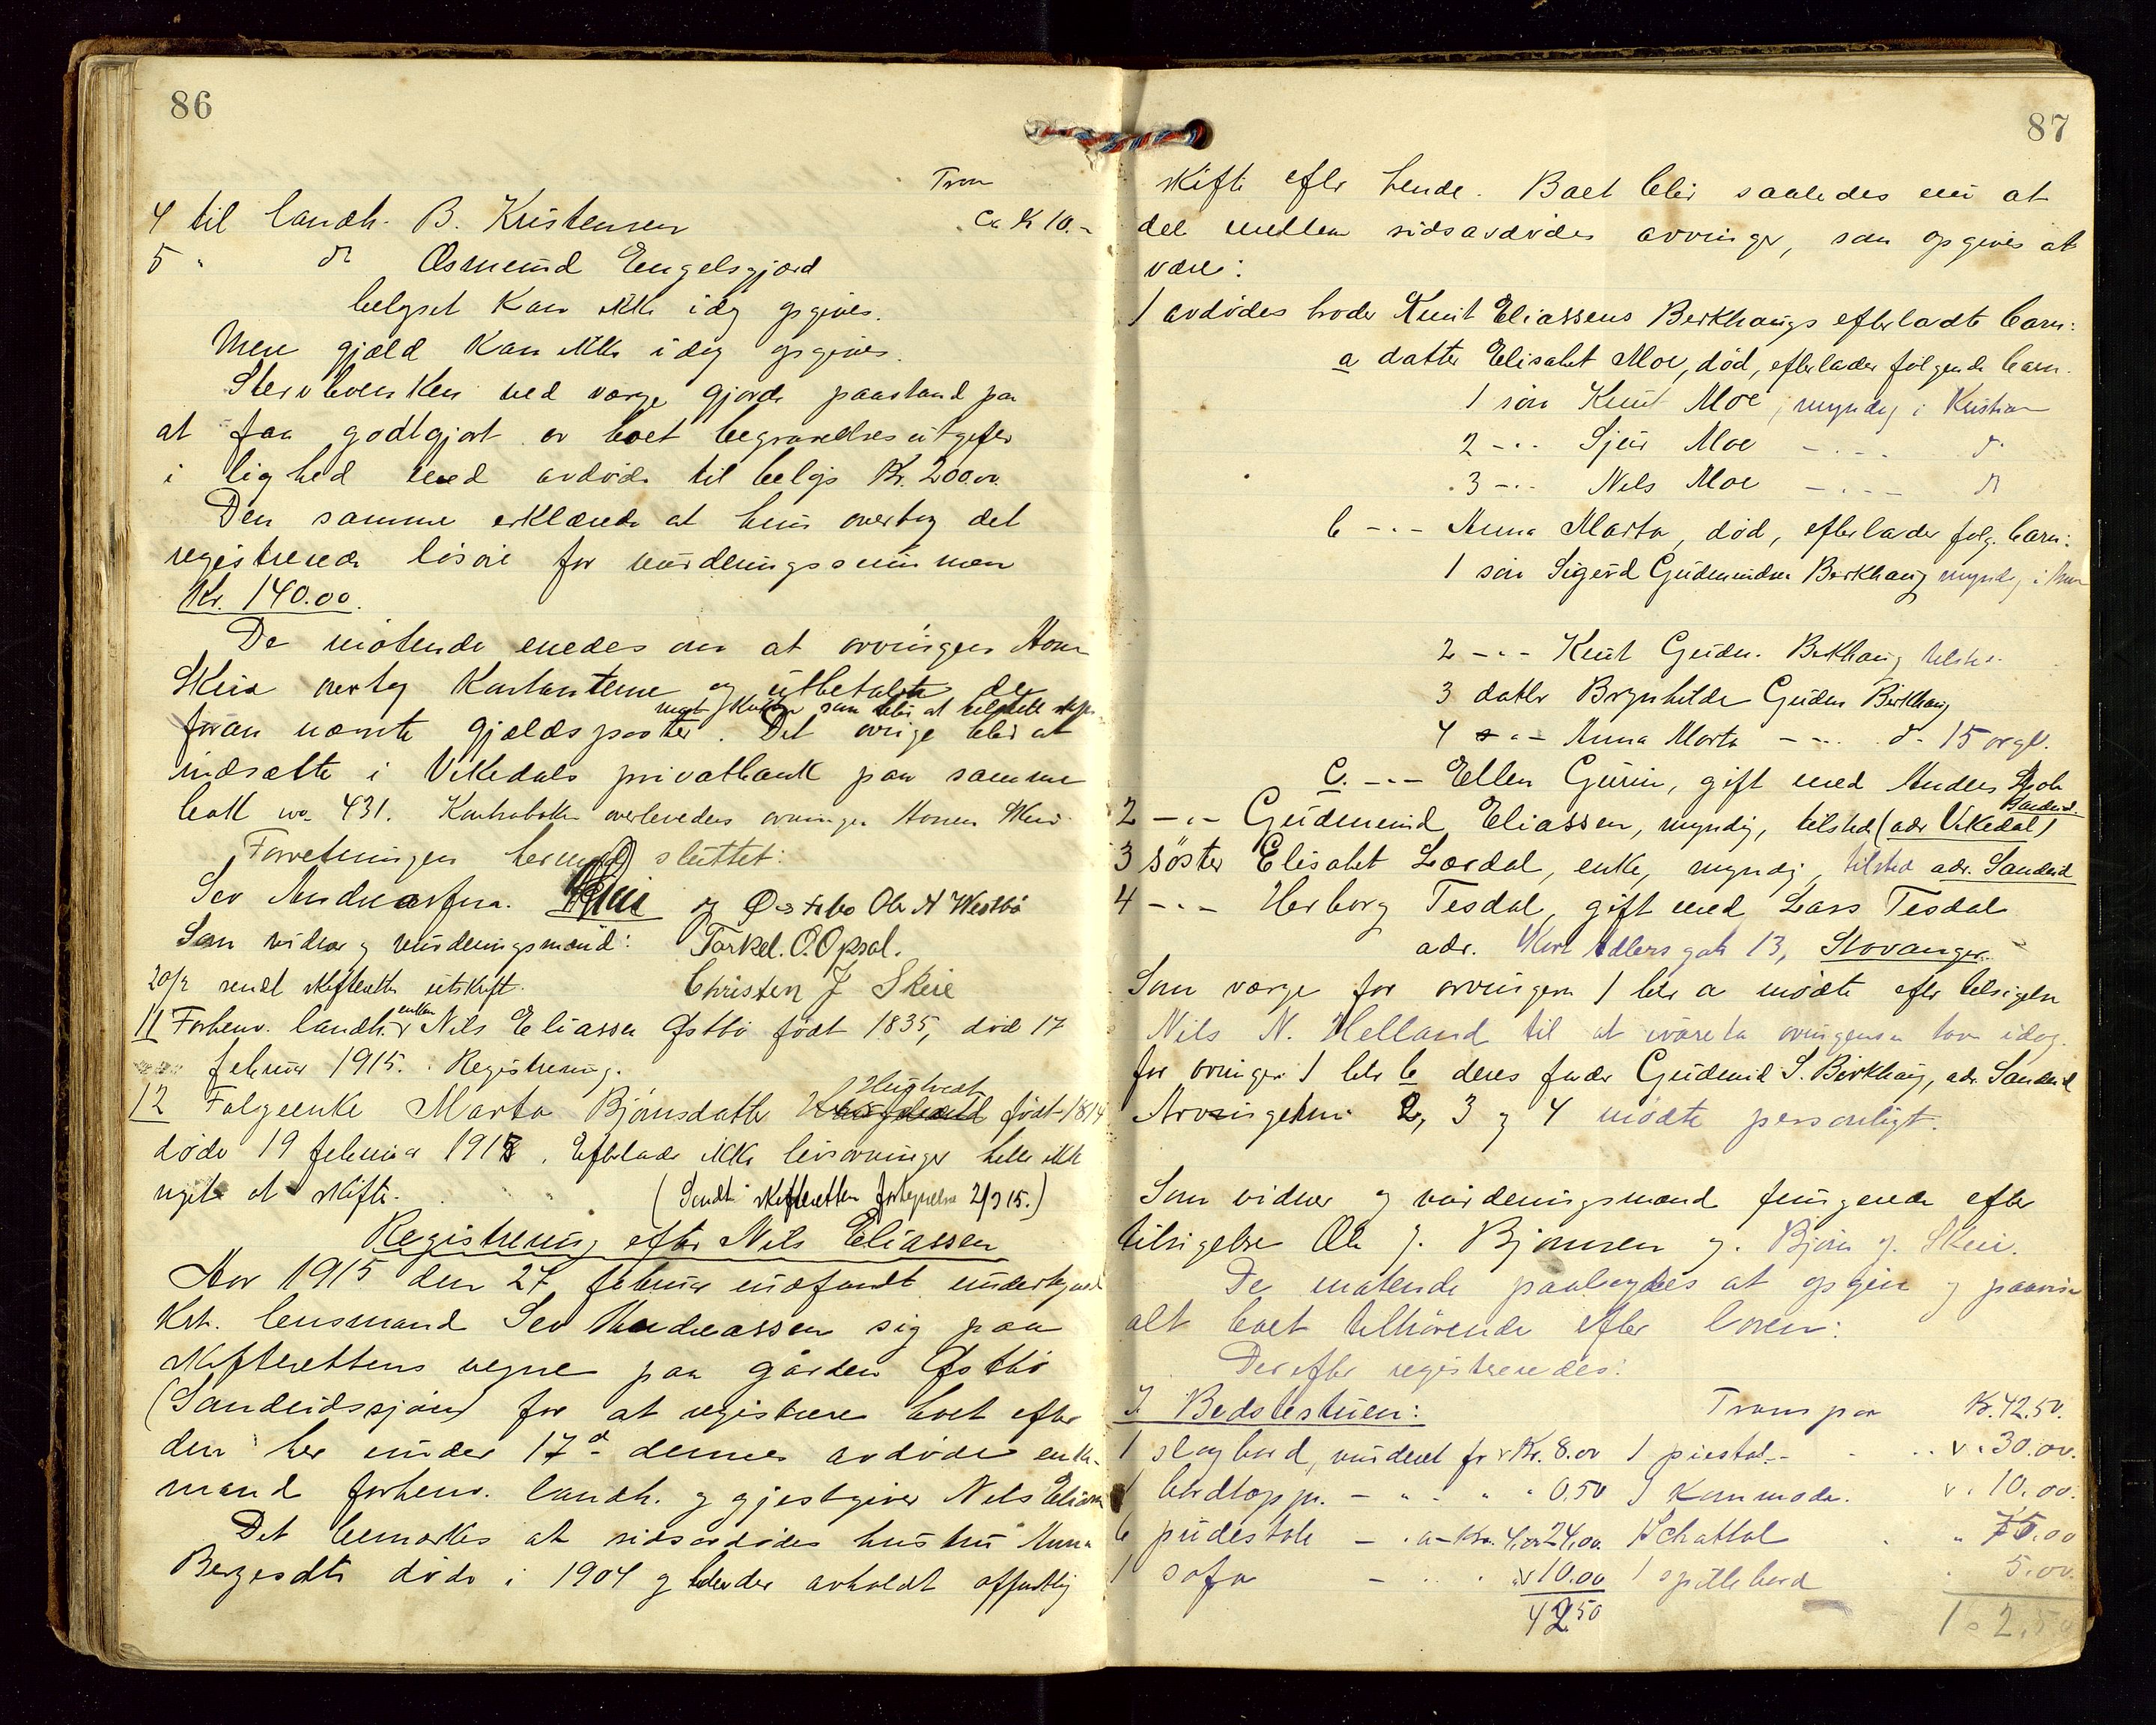 86
Tron
4 til landh. B. Kristensen Ca K 10.-
5 " do Osmund Engelsgjærd
beløpet kan ikke idag opgives.
Mere gjæld kan ikke idag opgives.
Stervboenken ved værge gjorde paastand paa
at faa godtgjort av boet begravelsesutgifter
i lighed med avdøde til beløp Kr. 200.00
Den samme erklærede at hun overtog det
registrerede løsøre for vurderingssummen
Kr. 140.00.
De møtende enedes om at arvingen
Skeie overtog Kontanterne og utbetalte de
som blir at
foran nævnte gjældsposter. Det øvrige blir at
indsætte i Vikedals privatbank paa samme
no. 431.
Forretningen hermed sluttet:
Sev Andreassen. Ole A Westbø
Som vidner og vurderingsmænd: Torkel. O. Opsal.
20/2 sendt skifteretten utskrift. Christen J Skeie
11 Forhenv. landh. enkem. Nils Eliassen Østbø født 1835, død 17
februar 1915. Registrering.
12 Folgeenke Marta Bjørnsdatter født 1814
døde 19 februar 1915. Efterlader ikke livsarvinger heller ikke
noget at skifte. (Sendt skifteretten fortegnelse 2/3 15.)
Registrering efter Nils Eliassen
Aar 1915 den 27 februar indfandt undertegnede
Kst. lensmand Sev Andreassen sig paa
skifterettens vegne paa gården Østbø
(Sandeidssjøen) for at registrere boet efter
den her under 17d dennes avdøde enke-
mand forhenv. landh. og gjestgiver Nils Eliassen
Det bemerkes at sidsavdødes hustru Anna
Bergesdtr døde i 1904 og blev der avholdt offentlig
87
skifte efter hende. Boet blir saaledes nu at
dele mellem sidsavdødes arvinger, som opgives at
være:
1 avdødes broder Knut Eliassens Berkhaugs efterladte barn:
a datter Elisabet Moe, død, efterlader følgende barn.
1 søn Knut Moe, myndig i Kristiania
2 -"- Sjur Moe -"- do
3 -"- Nils Moe -"- do
b -"- Anna Marta, død, efterlader følg. barn:
1 søn Sigurd Gudmundsen Birkhaug myndig i
2 -"- Knut Gudm. Birkhaug tilstede
3 datter Brynhilde Gudm Birkhaug
4 -"- Anna Marta -"- do 15 aar gl.
c. -"- Ellen Gurin, gift med Anders
Sandeid.
2 -"- Gudmund Eliassen, myndig, tilsted (adr Vikedal)
3 søster Elisabet Lærdal, enke, myndig, tilsted adr. Sandeid
4 -"- Herborg Tesdal, gift med Lars Tesdal
adr. Kort Adlers gate 13, Stavanger.
Som værge for arvingerne 1 litr a mødte efter tilsigelse
Nils N. Helland til at ivareta arvingenes tarv idag.
for arvinger 1 litr b deres fader Gudmund S. Birkhaug, adr. Sandeid
Arvingerne 2, 3 og 4 mødte personligt.
Som vidner og vurderingsmænd fungerede efter
tilsigelse Ole J. Bjørnsen og Bjørn J. Skeie.
De møtende paalagdes at opgive og paavise
alt boet tilhørende efter loven:
Derefter registreredes:
I. Bedstestuen: Transpor Kr. 42.50.
1 slagbord, vurderet for Kr. 8.00 1 piestal -- " 30.00.
1 bordtæppe. - " " " 0.50 1 Kommode. " 10.00.
6 pudestole - " a Kr. 4,00 24.00. 1 Chattol " 75.00
1 sofa - " 10.00 1 spillebord " 5.00.
42.50 162.50